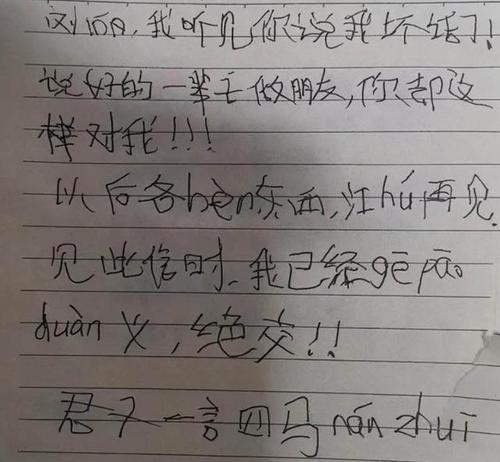 刘涵，我听见你说我坏话了！
说好的一辈子做朋友，你却这
样对我！！！
以后各bèn东西，江hú再见，
见此信时，我已经gē páo
duàn义，绝交！！
君子一言四马nán zhuī